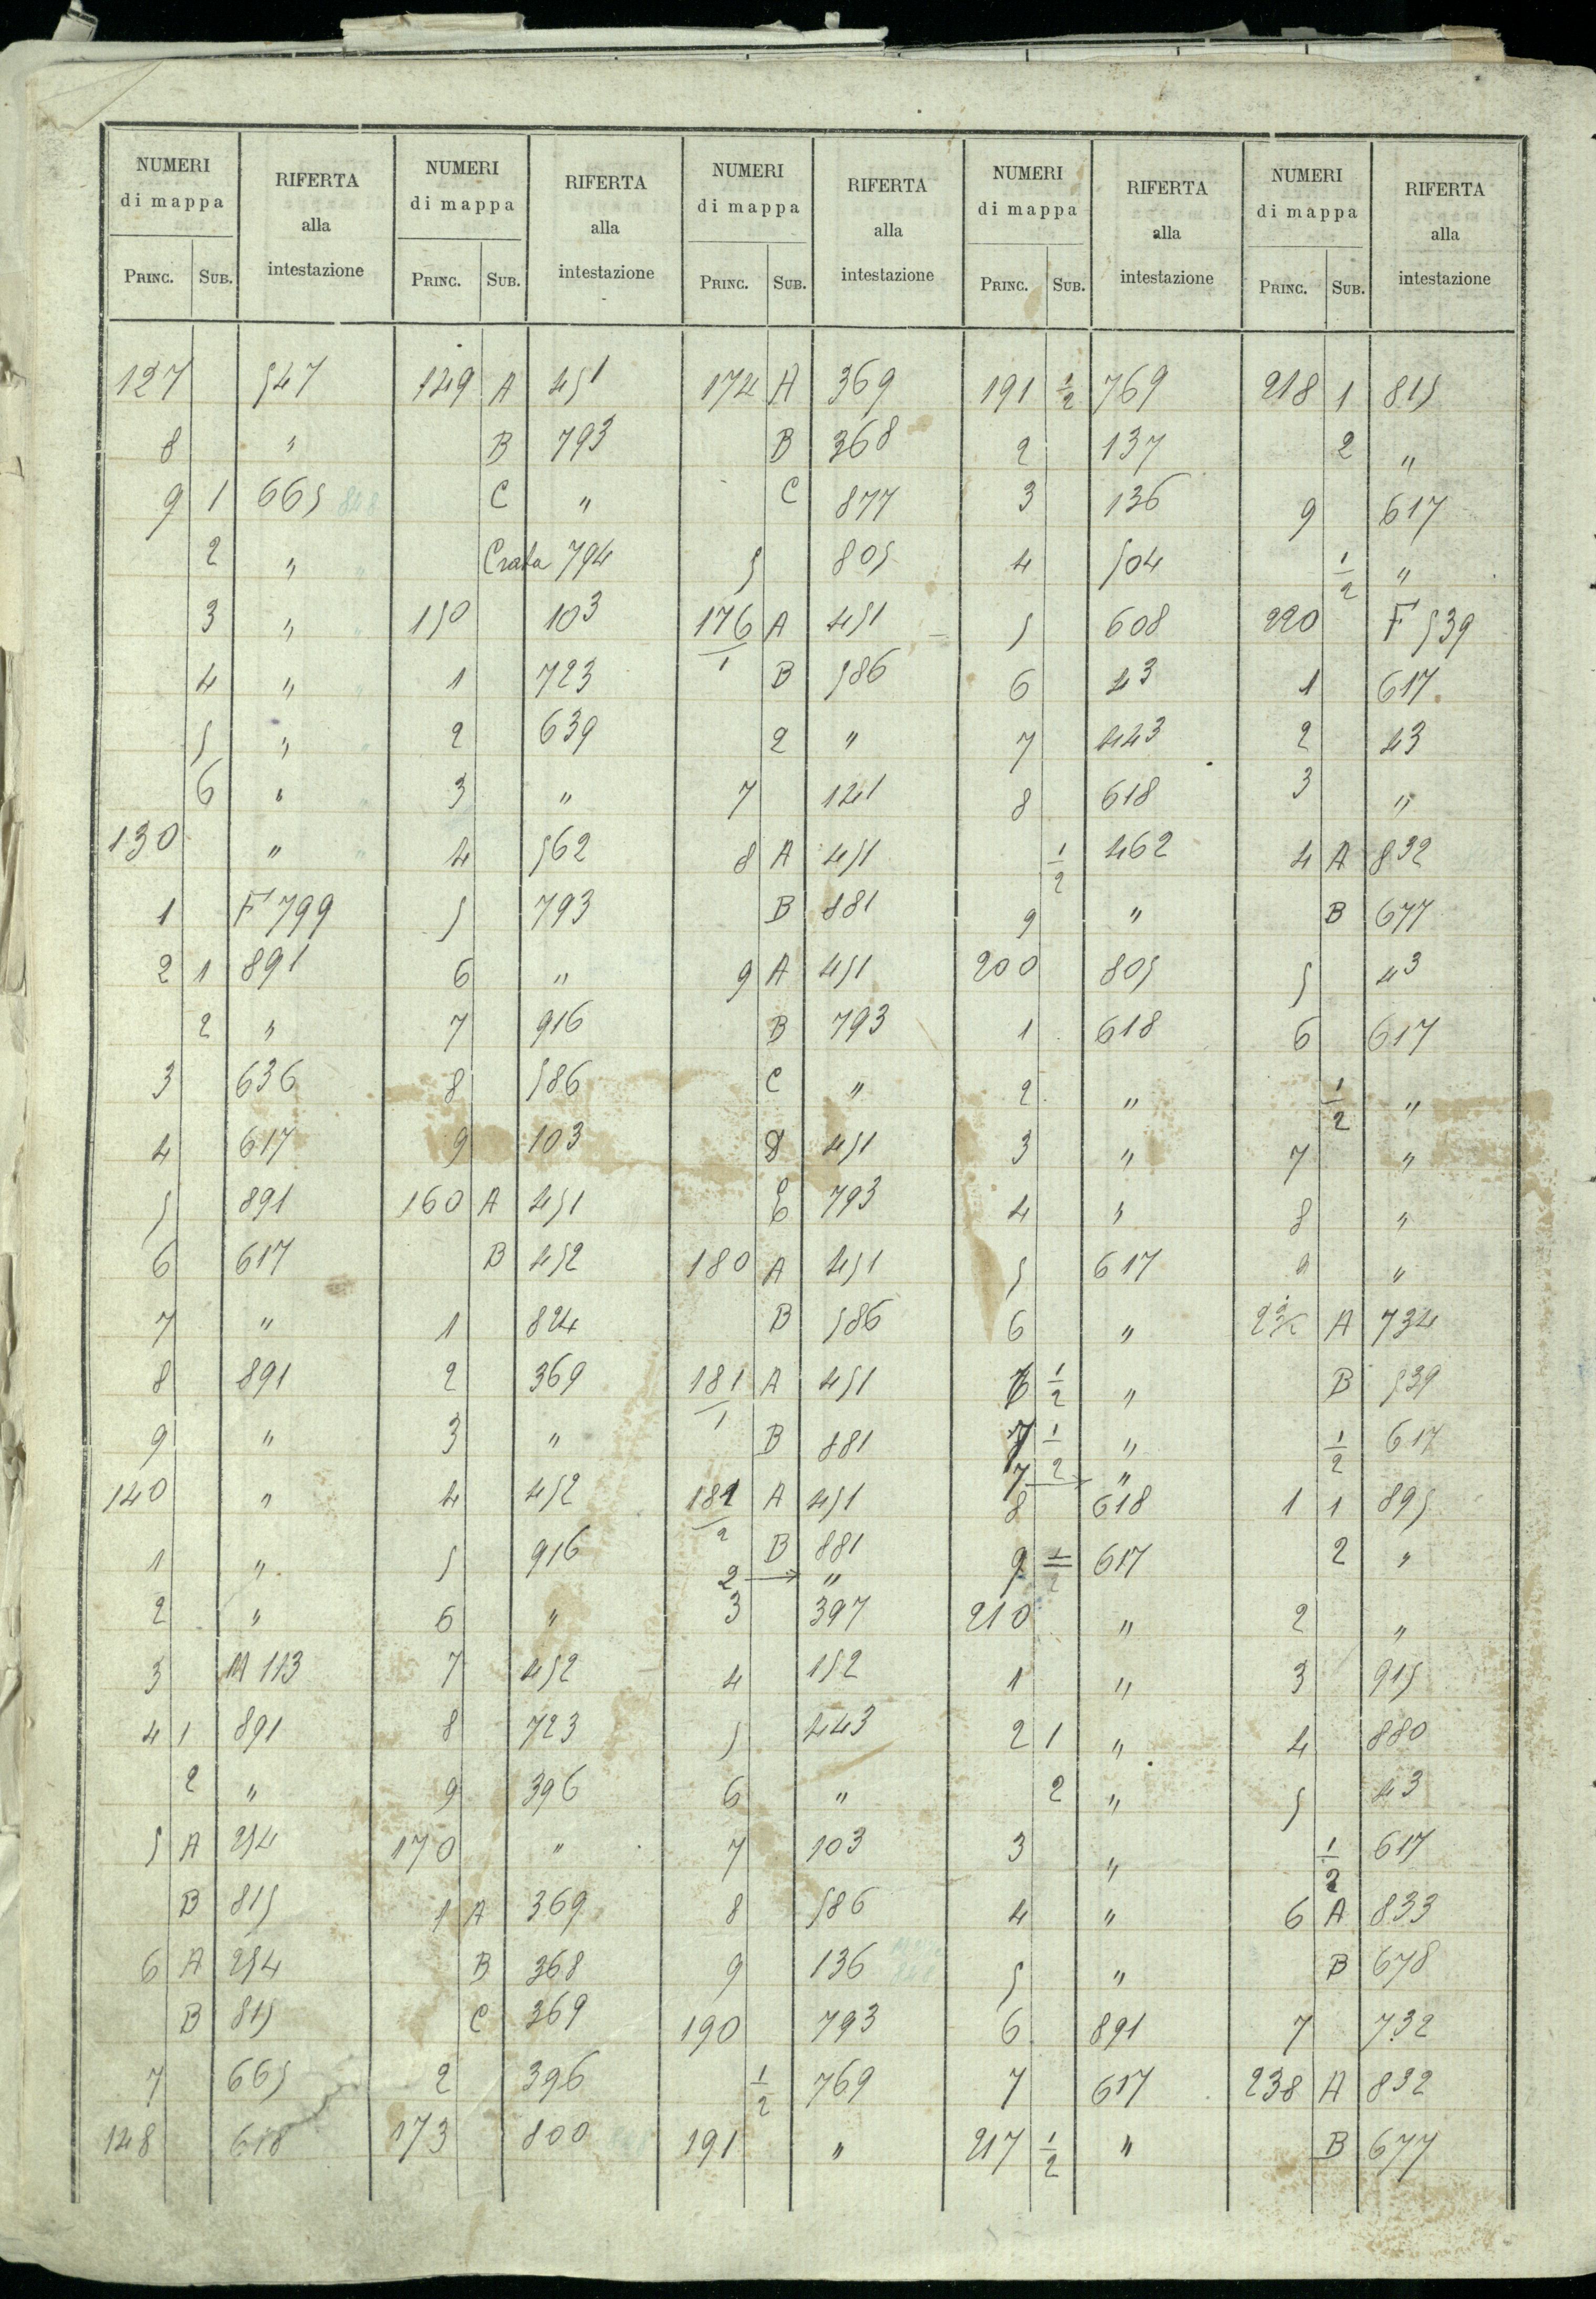 NUMERI di mappa RIFERTA alla intestazione NUMERI di mappa RIFERTA alla intestazione NUMERI di mappa RIFERTA alla intestazione NUMERI di mappa RIFERTA alla intestazione NUMERI di mappa RIFERTA alla intestazione
PRINC. SUB. PRINC. SUB. PRINC. SUB. PRINC. SUB. PRINC. SUB.
127 547 149 A 451 174 A 369 191 1/2 769 218 1 815
8 " B 793 B 368 2 137 2 "
9 1 665 848 C " C 877 3 136 9 617
2 " " Crata 794 5 805 4 504 1/2 "
3 " " 150 103 176/1 A 451 5 608 220 F 539
4 " " 1 723 B 586 6 43 1 617
5 " " 2 639 2 " 7 443 2 43
6 " " 3 " 7 141 8 618 3 "
130 " " 4 562 8 A 451 1/2 462 4 A 832
1 F 799 5 793 B 881 9 " B 677
2 1 891 6 " 9 A 451 200 805 5 43
2 " 7 916 B 793 1 618 6 617
3 636 8 586 C " 2 " 1/2 "
4 617 9 103 D 451 3 " 7 "
5 891 160 A 451 E 793 4 " 8 "
6 617 B 452 180 A 451 5 617 9 "
7 " 1 824 B 586 6 " A 734
8 891 2 369 181/1 A 451 6 1/2 " B 539
9 " 3 " B 881 7 1/2 " 1/2 617
7 "
140 " 4 452 181/2 A 451 8 618 1 1 895
1 " 5 916 B 881 9 1/2 617 2 "
2 "
2 " 6 " 3 397 210 " 2 "
3 M 113 7 452 4 152 1 " 3 915
4 1 891 8 723 5 443 2 1 " 4 880
2 " 9 396 6 " 2 " 5 43
5 A 254 170 " 7 103 3 " 1/2 617
B 815 1 A 369 8 586 4 " 6 A 833
6 A 254 B 368 9 136 5 " B 678
B 815 C 369 190 793 6 891 7 732
7 665 2 396 1/2 769 7 617 238 A 832
148 618 173 800 191 " 217 1/2 " B 677